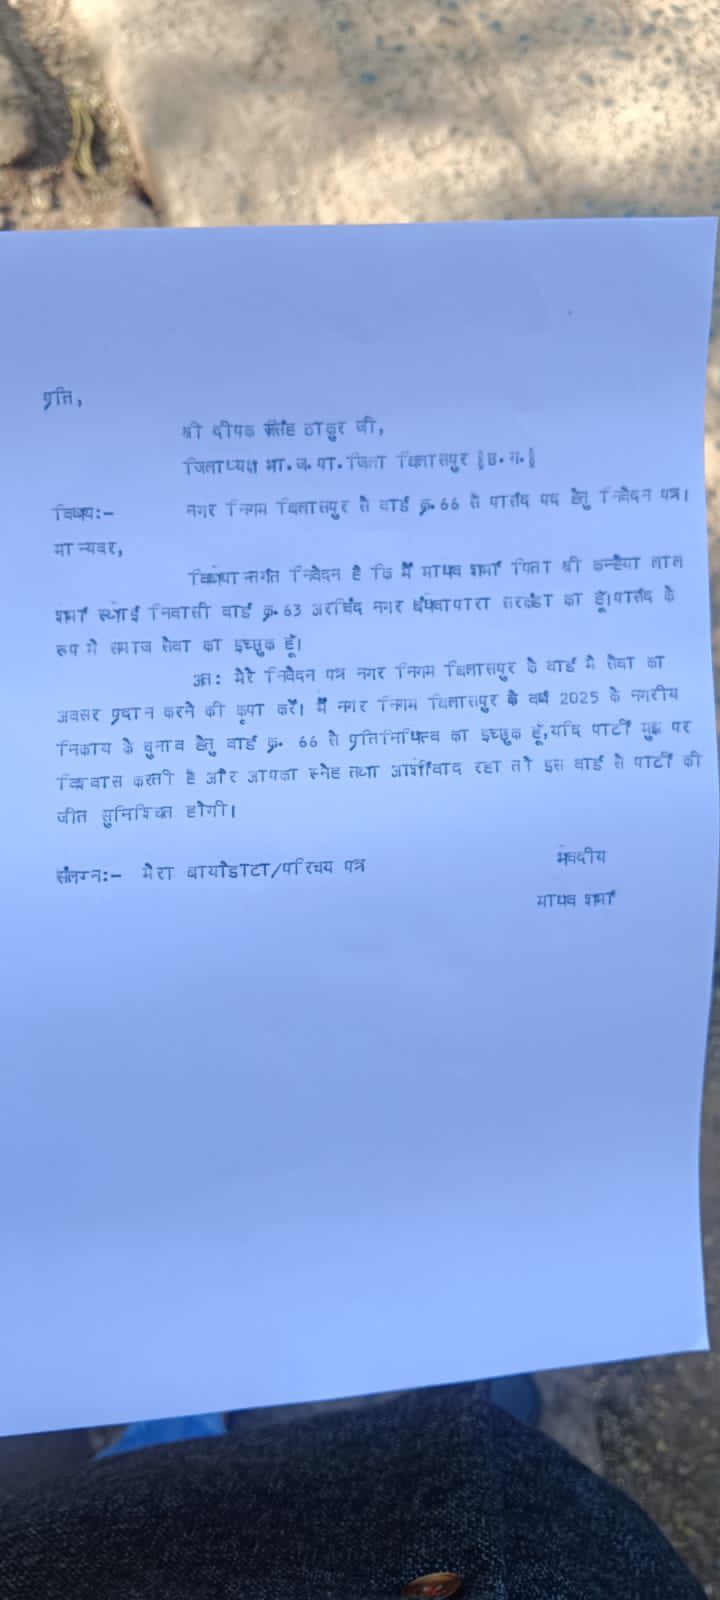 प्रति,
श्री दीपक सिंह ठाकुर जी,
जिलाध्यक्ष भा.ज.पा.जिला बिलासपुर [छ.ग.]
विषय:- नगर निगम बिलासपुर से वार्ड क्र.66 से पार्सद पद हेतु निवेदन पत्र।
मान्यवर,
विषयान्तर्गत निवेदन है कि मैं माधव शर्मा पिता श्री कन्हैया लाल
शर्मा स्थाई निवासी वार्ड क्र.63 अरविंद नगर बंधवापारा सरकंडा का हूँ।पार्सद के
रूप मे समाज सेवा का इच्छुक हूँ।
अत: मेरे निवेदन पत्र नगर निगम बिलासपुर के वार्ड मे सेवा का
अवसर प्रदान करने की कृपा करें। मैं नगर निगम बिलासपुर के वर्ष 2025 के नगरीय
निकाय के चुनाव हेतु वार्ड क्र. 66 से प्रतिनिधित्व का इच्छुक हूँ,यदि पार्टी मुझ पर
विश्वास करती है और आपका स्नेह तथा आर्शीवाद रहा तो इस वार्ड से पार्टी की
जीत सुनिश्चित होगी।
संलग्न:- मेरा बायोडाटा/परिचय पत्र
भवदीय
माधव शर्मा